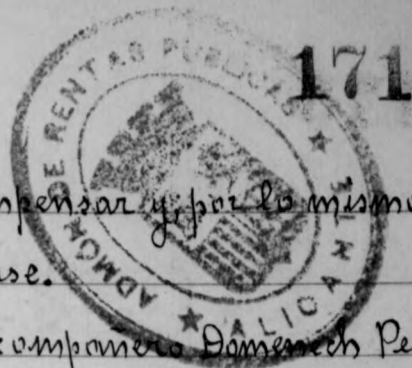 171
ADMÓN DE RENTAS PÚBLICAS
★ ALICANTE ★
pensar y, por lo mismo
se.
compañero Domenech Pe